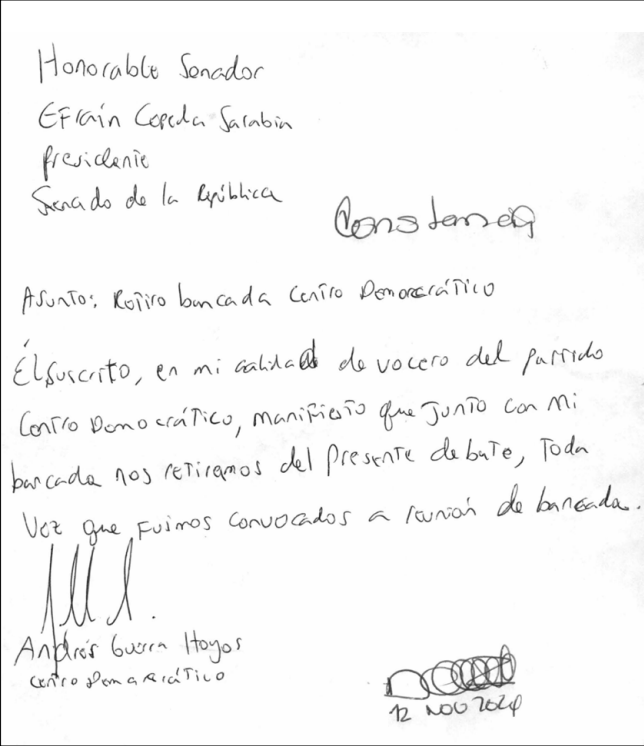 Honorable Senador
Efraín Cepeda Sarabia
Presidente
Senado de la República
Constancia
Asunto: Retiro bancada Centro Democrático
El suscrito, en mi calidad de vocero del partido
Centro Democrático, manifiesto que junto con mi
bancada nos retiramos del presente debate, toda
vez que fuimos convocados a reunión de bancada.
Andrés Guerra Hoyos
Centro Democrático
12 NOV 2024